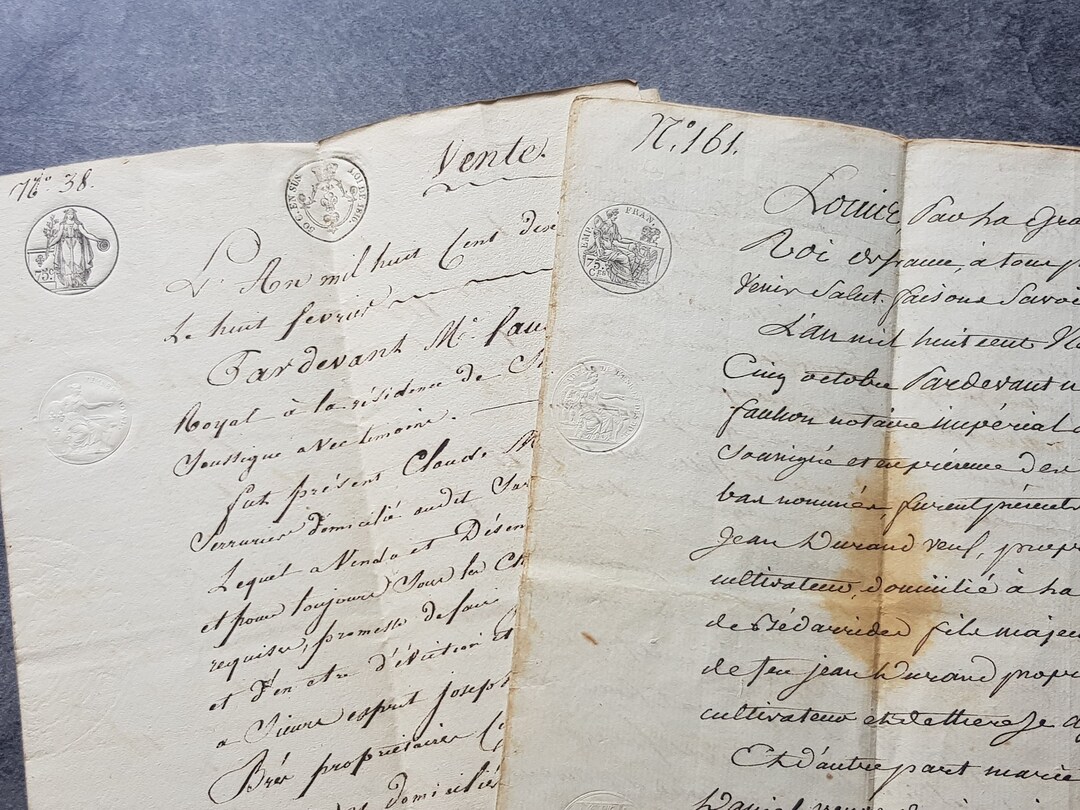 N.º 38.
Vente.
50 C. EN SUS
LOI DE 1816.
75c
L'An mil huit Cent dix
Le huit fevrier
Pardevant Me. fau
Royal à la résidence de
Soussigné avec temoins.
fut présent Claude M
Serrurier domicilié audit
Lequel a Vendu et Désem
et pour toujours Sous les
requises, promesse de faire
et d'en etre d'éviction et
a Sieurs esprit Joseph
propriétaires
domicilié
N.º 161.
EMP. FRAN.
75
Louis Par la Gra
Roi de france, à tous p
Venir Salut. faisons Savoi
L'an mil huit cent
Cinq octobre Pardevant
faulcon notaire impérial
Soussigné et en présence des
bas nommés, furent présents
Jean Durand veuf, propr
cultivateur, domicilié à
de Bédarrides fils majeu
de feu jean Durand propri
cultivateur et de
Et d'autre part marie